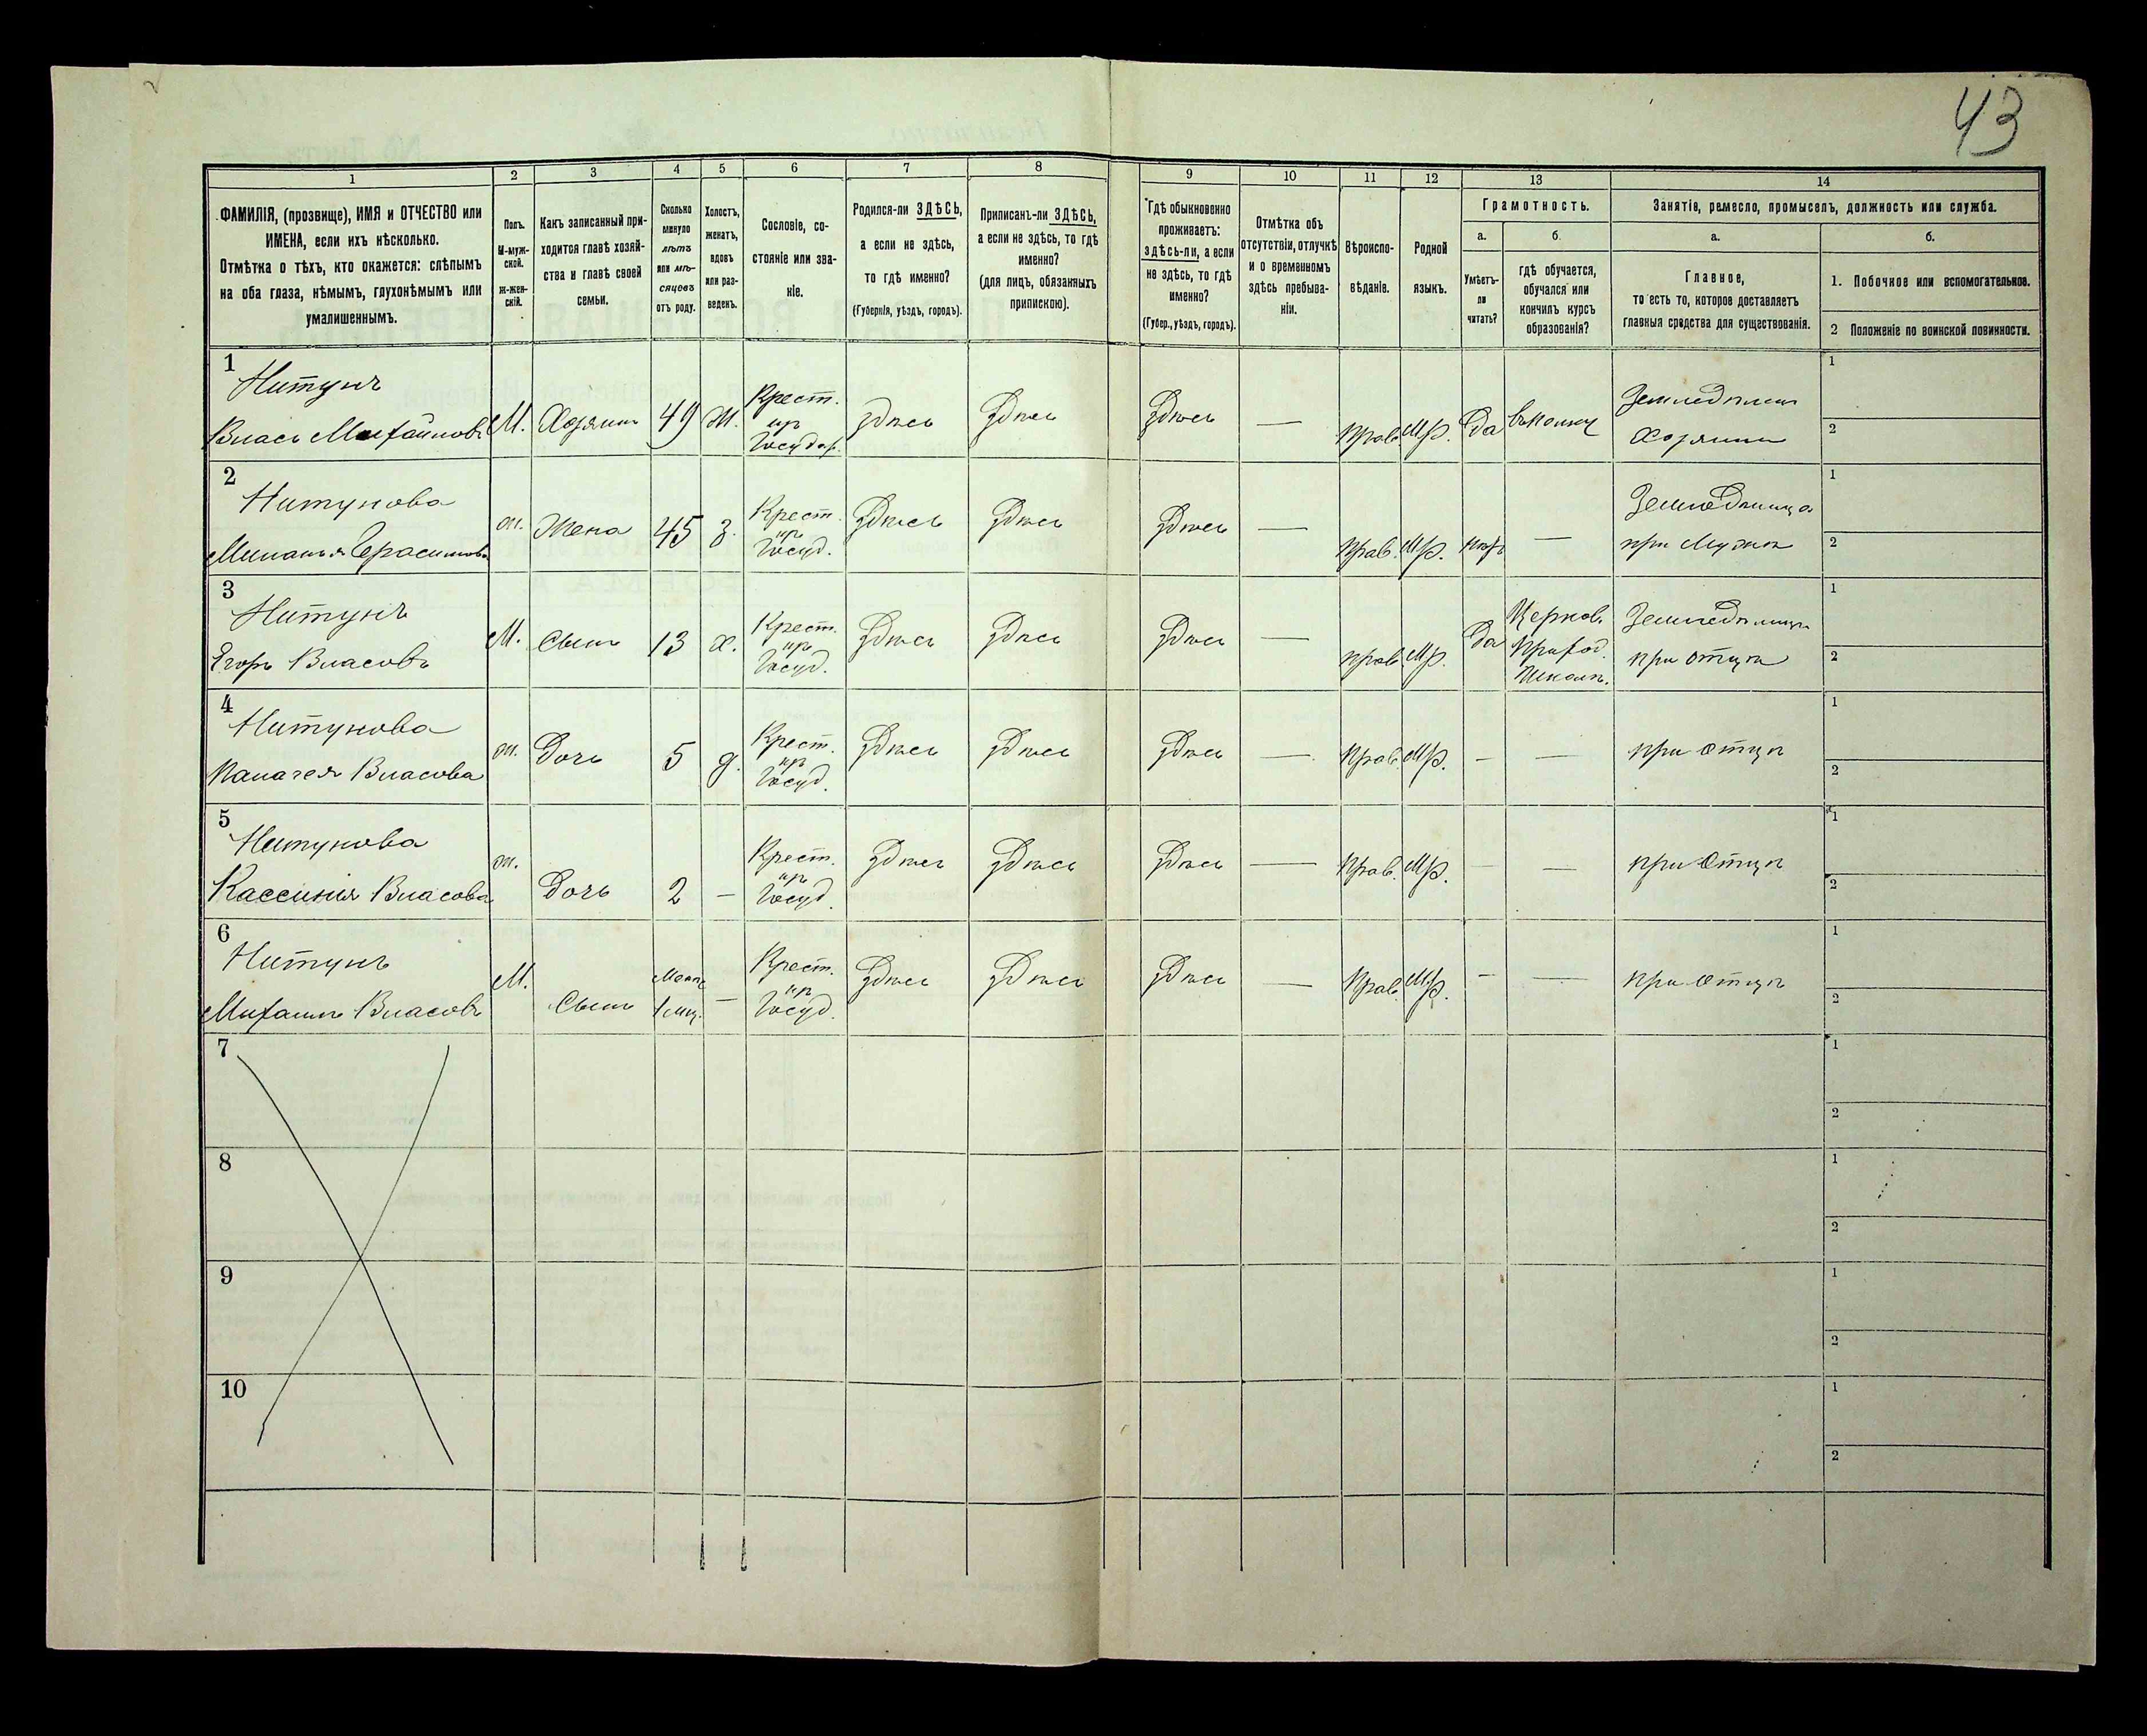 43
1
2
3
4
5
6
7
8
9
10
11
12
13
14
ФАМИЛІЯ, (прозвище), ИМЯ и ОТЧЕСТВО или
ИМЕНА, если ихъ нѣсколько.
Отмѣтка о тѣхъ, кто окажется: слѣпымъ
на оба глаза, нѣмымъ, глухонѣмымъ или
умалишеннымъ.
Полъ.
М-муж-
ской.
Ж-жен-
скій.
Какъ записанный при-
ходится главѣ хозяй-
ства и главѣ своей
семьи.
Сколько
минуло
лѣтъ
или мѣ-
сяцевъ
отъ роду.
Холостъ,
женатъ,
вдовъ
или раз-
веденъ.
Сословіе, со-
стояніе или зва-
ніе.
Родился-ли ЗДѢСЬ,
а если не здѣсь,
то гдѣ именно?
(Губернія, уѣздъ, городъ).
Приписанъ-ли ЗДѢСЬ,
а если не здѣсь, то гдѣ
именно?
(для лицъ, обязанныхъ
припискою).
Гдѣ обыкновенно
проживаетъ:
здѣсь-ли, а если
не здѣсь, то гдѣ
именно?
(Губер., уѣздъ, городъ).
Отмѣтка объ
отсутствіи, отлучкѣ
и о временномъ
здѣсь пребыва-
ніи.
Вѣроиспо-
вѣданіе.
Родной
языкъ.
Грамотность.
а.
Умѣетъ-
ли
читать?
б.
гдѣ обучается,
обучался или
кончилъ курсъ
образованія?
Занятіе, ремесло, промыселъ, должность или служба.
а.
Главное,
то есть то, которое доставляетъ
главныя средства для существованія.
б.
1. Побочное или вспомогательное.
2 Положеніе по воинской повинности.
1
Нитунъ
Власъ Михайловъ
М.
Хозяинъ
49
Ж.
Крест.
изъ
Государ.
здѣсь
Здѣсь
Здѣсь
—
Прав.
Мр.
Да
въ полку
Земледѣлецъ
Хозяинъ
1
2
2
Нитунова
Миланья Герасимова
ж.
Жена
45
З.
Крест.
изъ
Госуд.
Здѣсь
Здѣсь
Здѣсь
—
Прав.
Мр.
—
Земледѣлица
при Мужѣ
1
2
3
Нитунъ
Егоръ Власовъ
М.
Сынъ
13
Х.
Крест.
изъ
Госуд.
Здѣсь
Здѣсь
Здѣсь
—
прав.
Мр.
Да
Церков.
Приход.
Школѣ.
при отцѣ
1
2
4
Нитунова
Палагея Власова
ж.
Дочь
5
д.
Крест.
изъ
Госуд.
Здѣсь
Здѣсь
Здѣсь
—
Прав.
Мр.
—
—
при отцѣ
1
2
5
Нитунова
Кассинія Власова
ж.
Дочь
2
—
Крест.
изъ
Госуд.
Здѣсь
Здѣсь
Здѣсь
—
Прав.
Мр.
—
—
при Отцѣ
1
2
6
Нитунъ
Михаилъ Власовъ
М.
Сынъ
1 мц.
—
Крест.
изъ
Госуд.
Здѣсь
Здѣсь
Здѣсь
—
Прав.
Мр.
—
—
при отцѣ
1
2
7
1
2
8
1
2
9
1
2
10
1
2